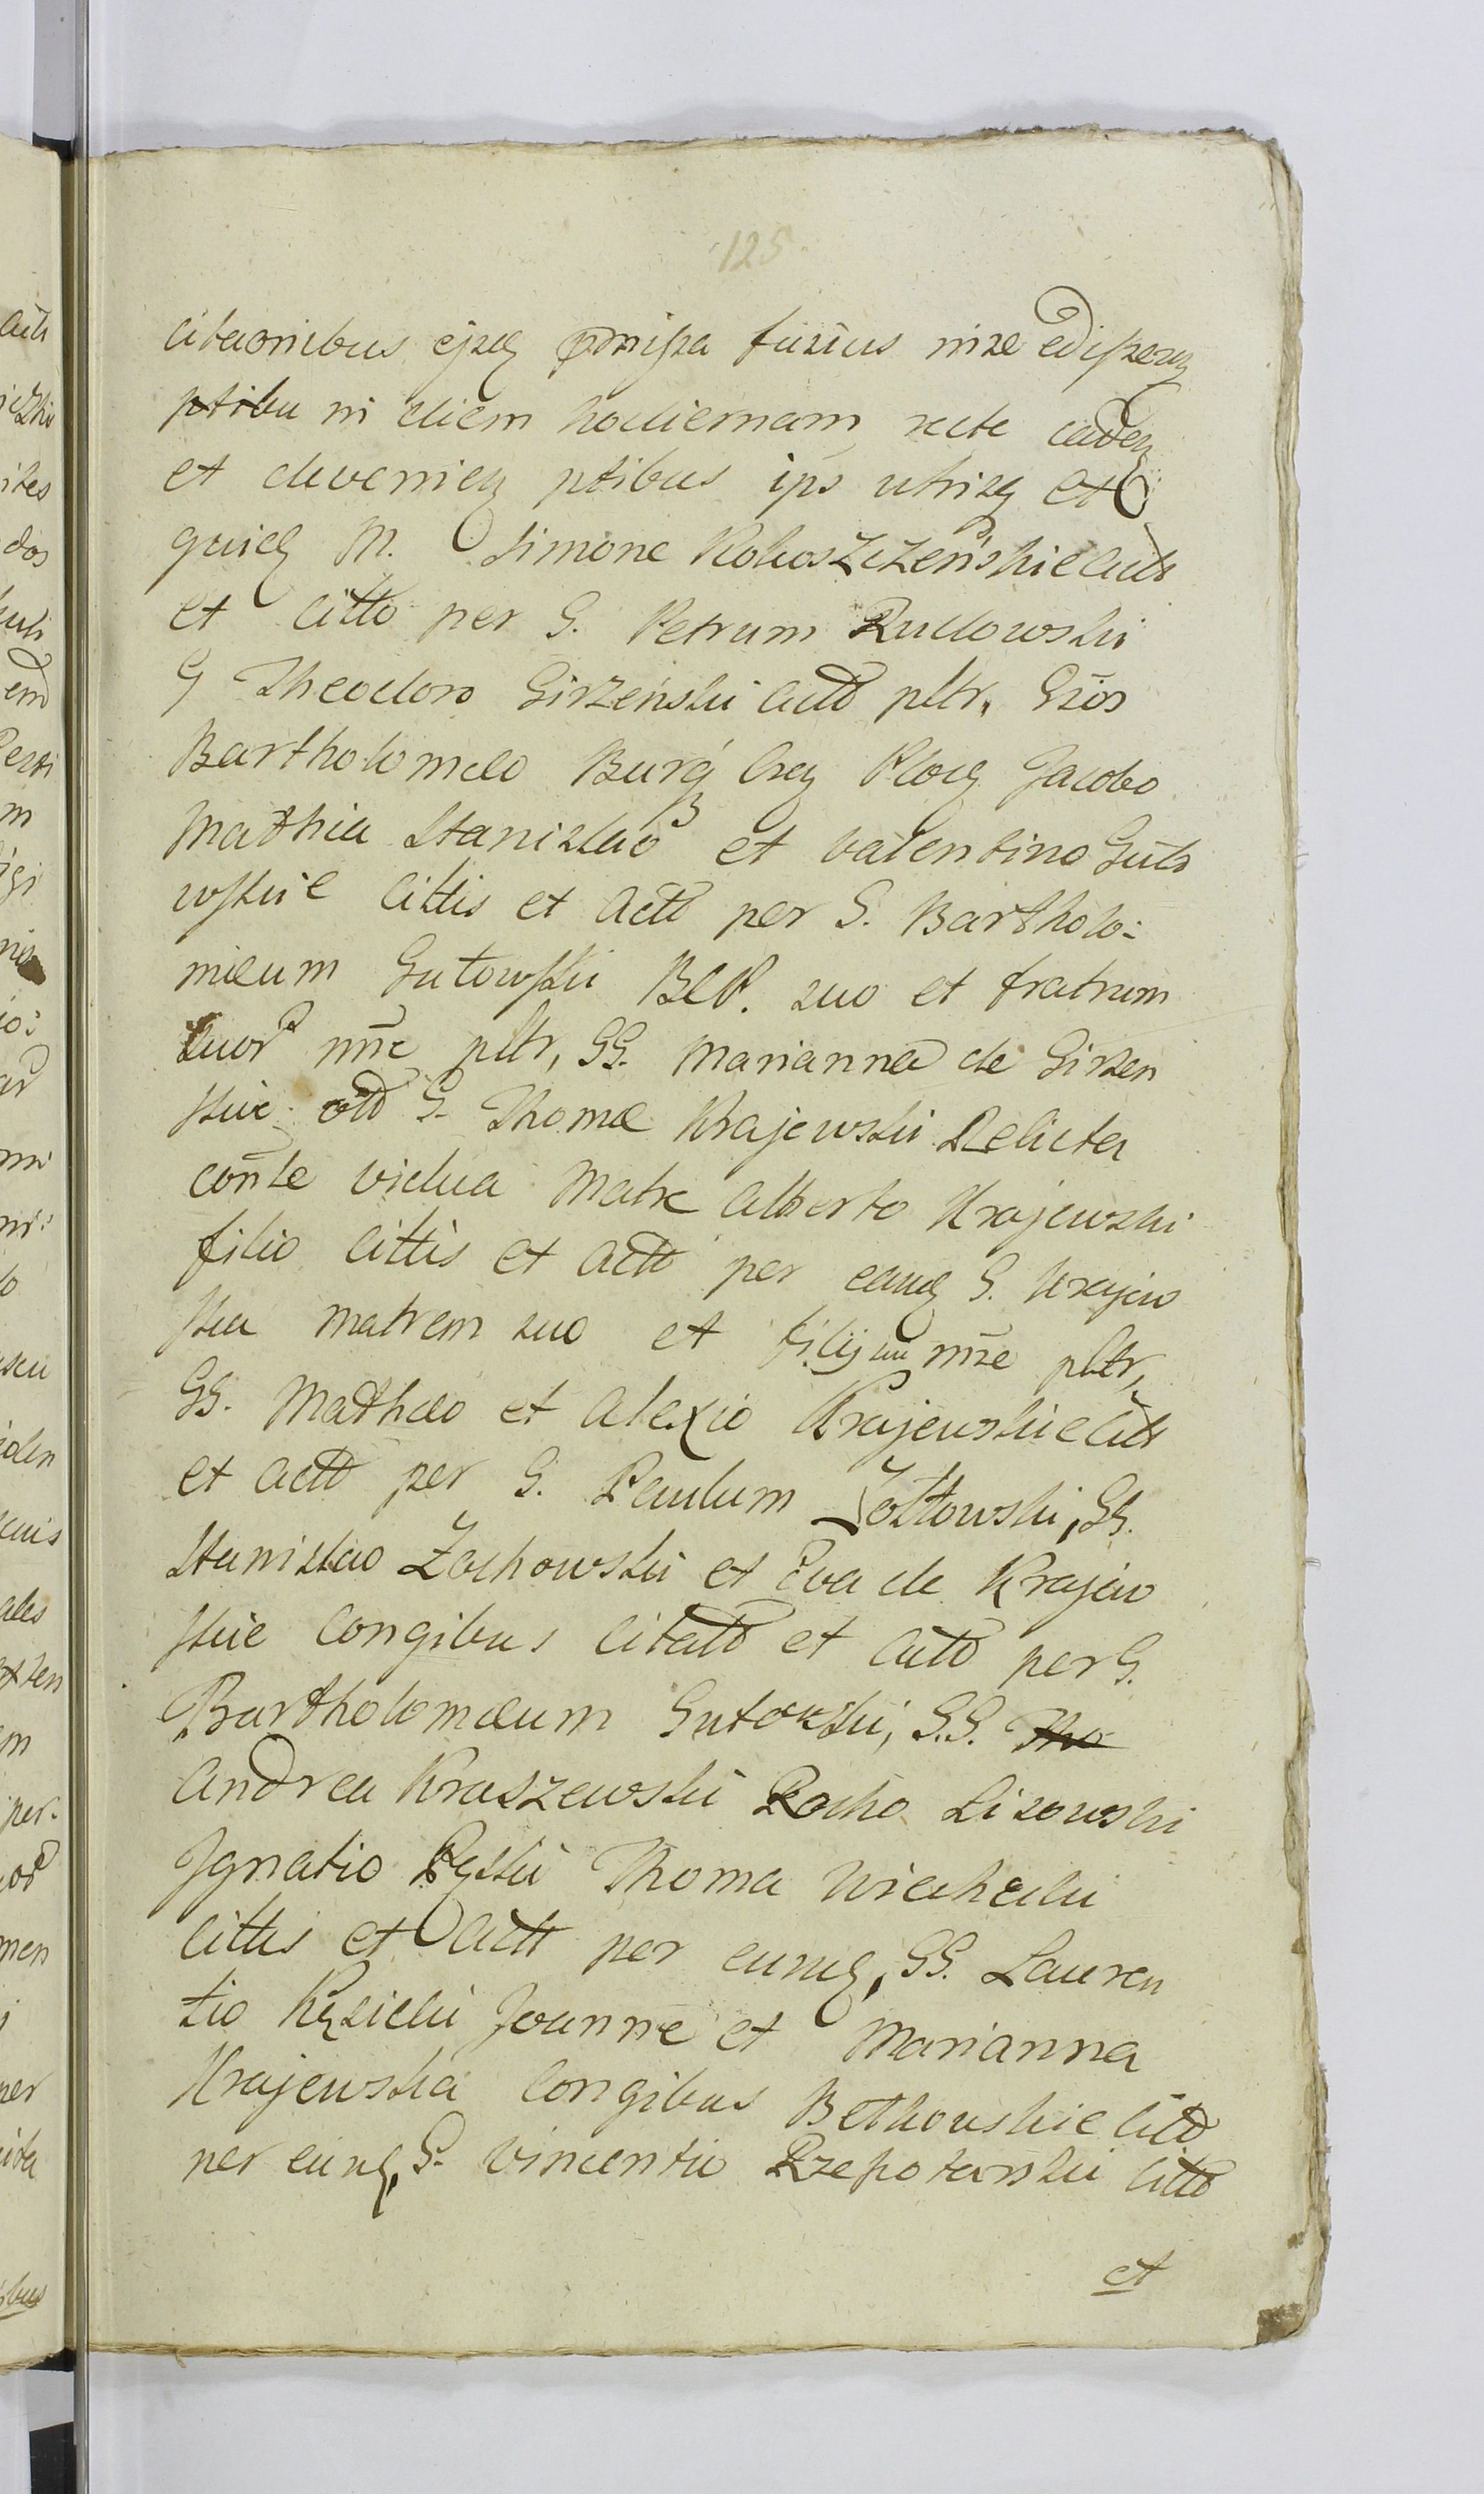 125
citaonibus ejzq fuzius
ptibu in diem hodiernam recte cadeq
et devenieq ptibus ips utrisq et
quidq M. Simone
et citto per G. Petrum Rudowski
G Theodoro Girzeński actt pltr. Gros
Bartholomeo Burg Plocq Jacobo
Mathia Stanislao et Valentino Guto
wskie cittis et actt per G. Bartholo=
mæum Gutowski BCP. suo et fratrum
suor nne pltr, GG. Marianna de Girzen
skie G. Thomæ Krajewski Relicta
conte vidua Matre Alberto Krajewski
filio cittis et actt per eamq G. Krajew
ska matrem suo et filij sui nne pltr,
GG. Mathæo et Alexio Krajewskie citt
et actt per G. Paulum Zołtowski, GG.
Stanislao Żochowski et Eva de Krajew
skie Congibus citatt et actt per G.
Bartholomæum Gutowski, G.G. Tho
Andrea Kraszewski Rocho Lisowski
Ignatio Thoma
cittis et actt per eumq, GG. Lauren
tio Kęsicki Joanne et Marianna
Krajewska Congibus Bethowskie citt
per eumq, G. Vincentio Rzepotarski citt
et